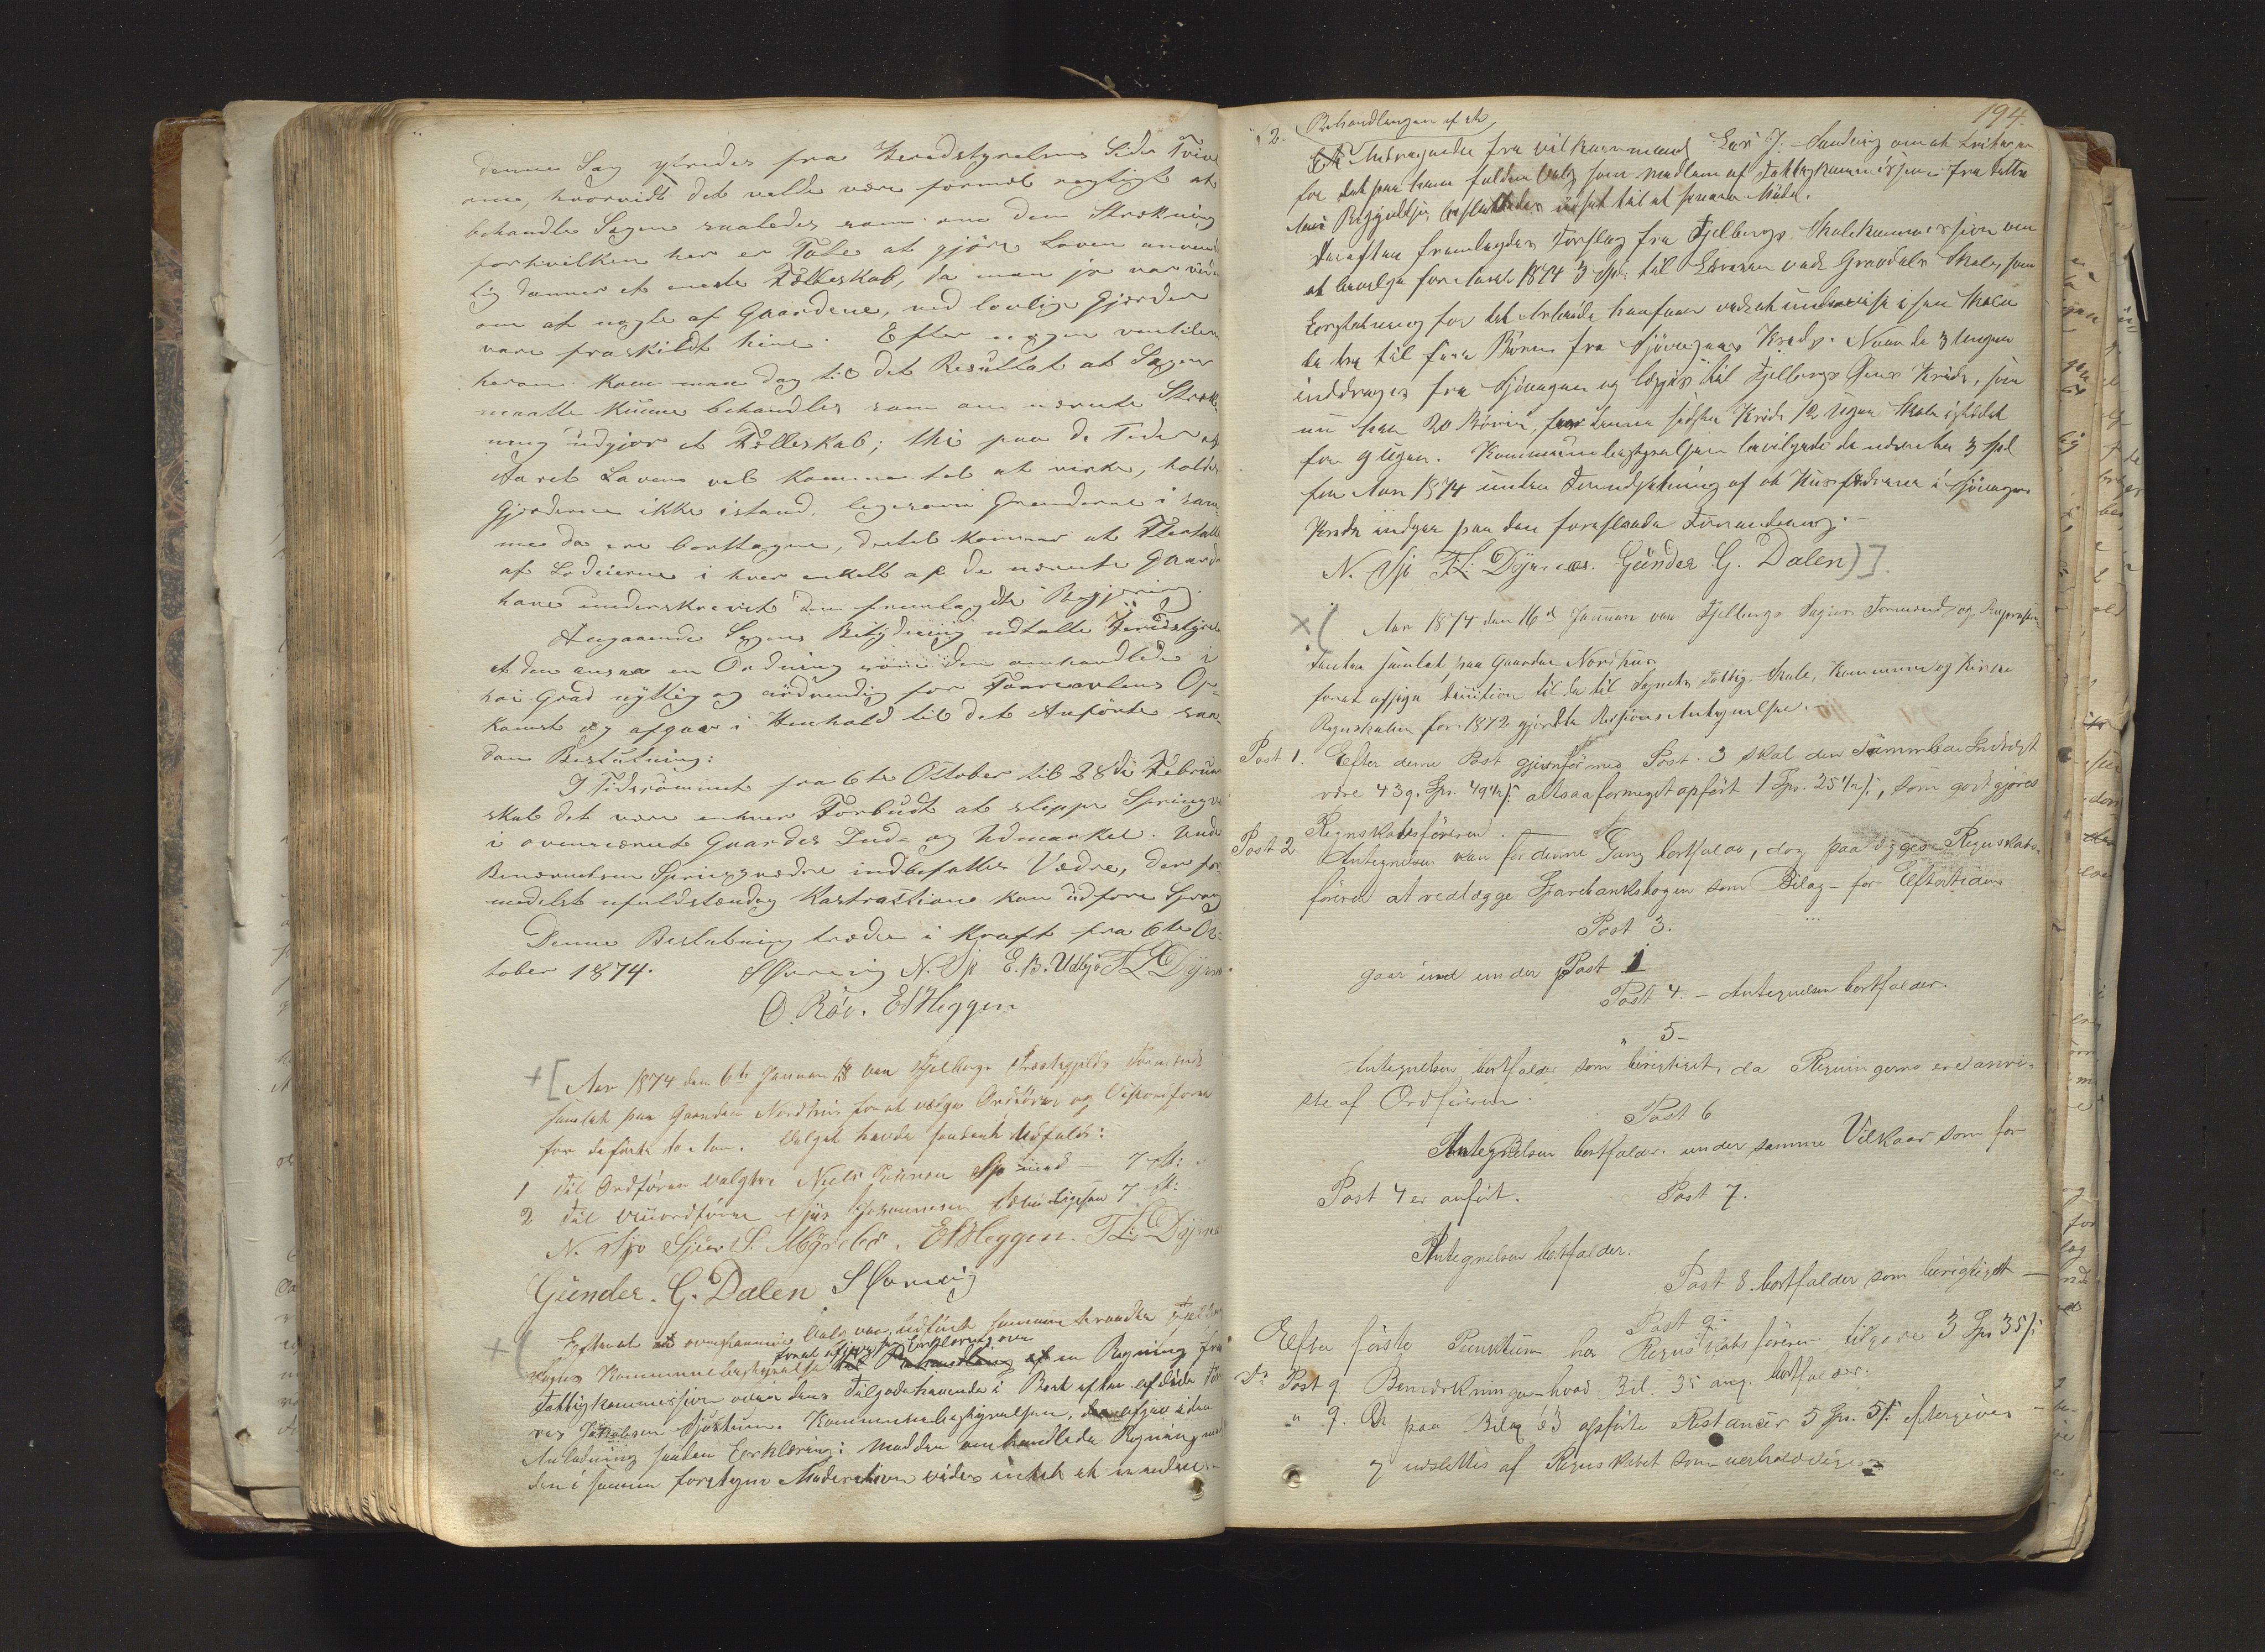 denne Sag ytredes fra Heredstyrelsens Side Tvivl
om, hvorvidt det vilde være formelt rigtigt at
behandle Sagen saaledes som om den Strækning
forhvilken her er Tale at gjøre Loven anvend
lig danner et eneste Fælleskab, da man jo var vi
om at nogle af Gaardene, ved lovlige Gjærder
vare fraskildt hine. Efter nogen ventileren
herom kom man dog til det Resultat at Sagen
maatte kunne behandles som om nævnte Stræk-
ning udgjør et Fælleskab; thi paa de Tider af
Aaret Loven vil komme til at virke, holdes
Gjærderne ikke istand, ligesom Grinderne i sam-
me da ere borttagne, dertil kommer at Flertallet
af Lodeierne i hver enkelt af de nævnte Gaarde
have underskrevet den fremlagdte Begjæring.
Angaaende Sagens Betydning udtalte Heredstyrel
at den ansaa en Ordning som den omhandlede i
høi Grad nyttig og nødvendig for Faareavlens Op-
komst og afgav i Henhold til det Anførte saa-
dan Beslutning:
I Tidsrommet fra 6te Oktober til 28de Februar
skal det være enhver Forbudt at slippe Springv
i ovennævnte Gaardes Ind- og Udmarker. Under
Benævnelsen Springvædre indbefattes Vædre, der for-
medelst ufuldstændig Kastration kan udføre Spring
Denne Beslutning træder i Kraft fra 6te Ok-
tober 1874. N. Sjo E. B. Udbjø T. L. Dyrnes
O. Røv. E Heggen
+ [ Aar 1874 den 6te Januar var Fjelbergs Præstegjelds Formænd
samlet paa Gaarden Nordhus for at vælge Ordfører og Viseordfører
for de første to Aar. Valget havde saadant Udfald:
1 Til Ordfører valgtes Niels Sjo med – 7 St:
2 Til Viceordfører Johannesen 7 St:
N. Sjo Sjur S. E Heggen. T. L. Dyrnes
Gunder. G. Dalen
+ ( Efterat ovennævnte Valg var udført sammentraadte
for at afgive sin Erklæring over
Sogns Kommunebestyrelse til Behandling af en Regning fra
Fattigkommission over dens Tilgodehavende i Boet efter afdøde
Kommunebestyrelsen, afgav i den
Anledning saadan Erklæring: Mod den omhandlede Regning med
den i samme foretagne Moderation vides intet at erindre. –
194.
2. Behandlingen af et
Et Andragende fra vilkaarsmand Lars J. Sandvig om at fritages
for det paa ham faldne Valg som Medlem af Fattigkommissionen fra dette
Aars Begyndelse besluttedes udsat til et senere Møde.
Derefter fremlagdes Forslag fra Fjelbergs Skolekommission om
at bevilge for Aaret 1874 3 Spd. til Læreren ved Gravdals Skole, som
Erstatning for det Arbeide han faar ved at undervise i sin Skole
de tre til fire Børn fra Sjøvegnes Kreds. Naar de 3 Uger
inddrages fra Sjøvegnes og lægges til Fjelbergs Øens Kreds, som
nu har 20 Børn, faar denne sidste Kreds 12 Ugers Skole istedet
for 9 Uger. Kommunebestyrelsen bevilgede de nævnte 3 Spd
for Aar 1874 under Forudsætning af at Husfædrene i Sjøvegnes
Kreds indgaar paa den foreslaaede Forandring. –
N. Sjo T. L: Dyrnes. Gunder G. Dalen ) ].
× ( Aar 1874 den 16d Januar var Fjelbergs Sogns Formænd og Repræsen-
tanter samlet paa Gaarden Nordhus
forat afgive Decision til de til Sognets Fattig, Skole, Kommune og Kirke
Regnskaber for 1872 gjordte Revisions Antegnelser. –
Post 1. Efter denne Post gjenført med Post. 3 skal den Samlede Indtægt
være 439. Spr. 49½ ß altsaa formeget opført 1 Spr. 25½ ß, som godtgjøres
Regnskabsføreren.
Post 2 Antegnelsen kan for denne Gang bortfalde, dog paalægges Regnskabs-
føreren at vedlægge Sparebanksbogen som Bilag – for Eftertiden
Post 3.
gaar ind under Post 1
Post 4. – Antegnelsen bortfalder.
" 5 –
Antegnelsen bortfalder som berigtiget, da Regningerne ere anvi-
ste af Ordføreren.
Post 6
Antegnelsen bortfalder. under samme Vilkaar som for
Post 4 er anført. Post 7.
Antegnelsen bortfalder.
Post 8. bortfalder som berigtiget –
Post 9.
Efter første Punktum har Regnskabsføreren tilgode 3 Spr 35 ß
Do Post 9 Bemærkninger – hvad Bil. 35 ang. bortfalder.
" 9. De paa Bilag 63 opførte Restancer 5 Spr. 5 ß eftergives –
og udslettes af Regnskabet som uerholdelige. –